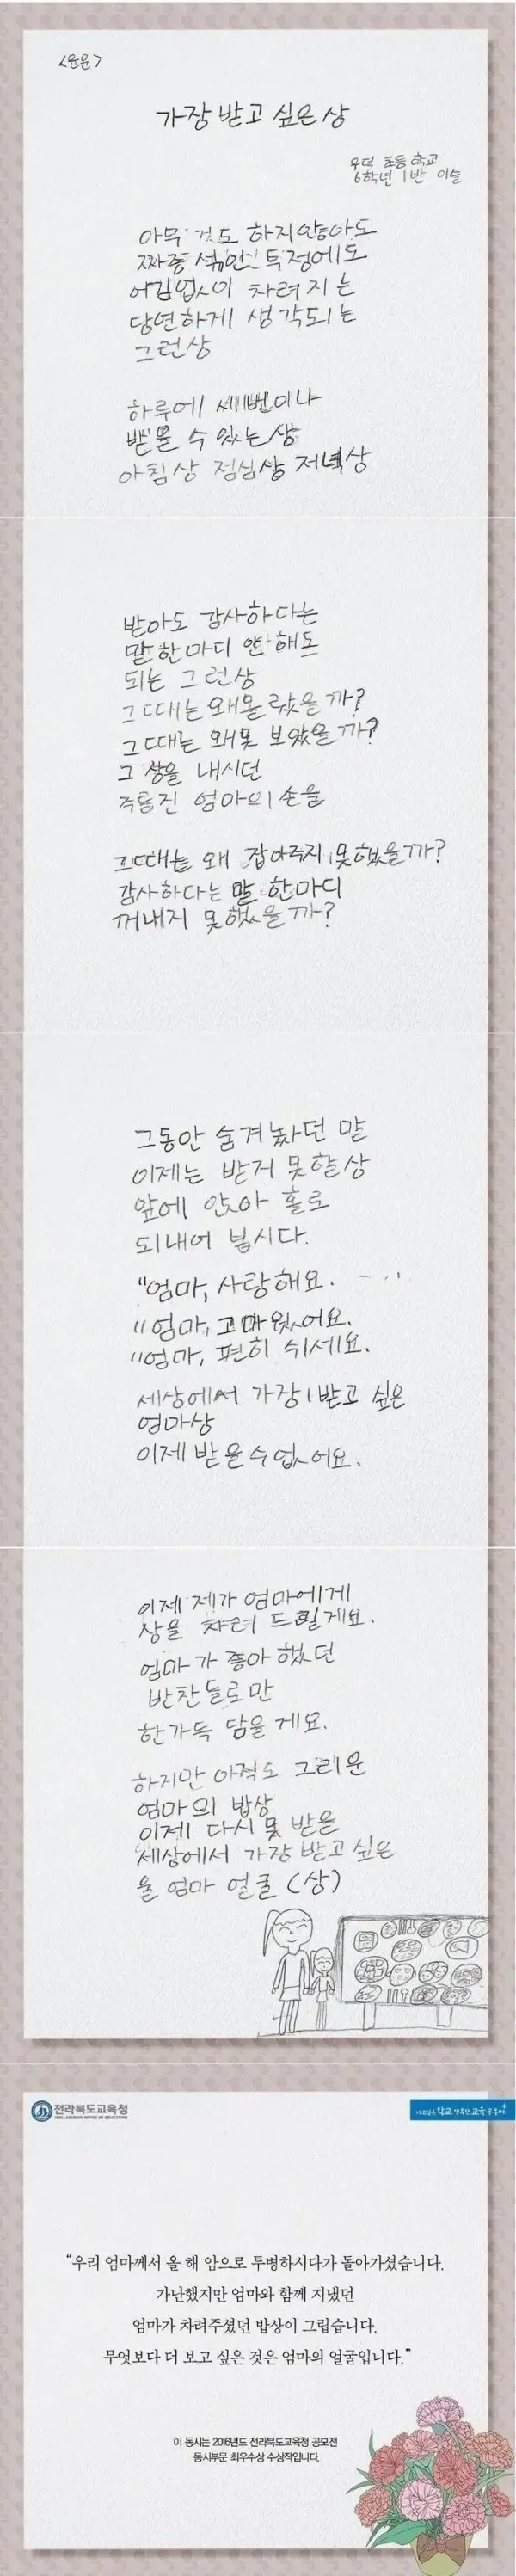 <운문>
가장 받고 싶은 상
우덕 초등학교
6학년 1반 이슬
아무 것도 하지않아도
짜증 섞인 투정에도
어김없이 차려지는
당연하게 생각되는
그런상
하루에 세번이나
받을 수 있는상
아침상 점심상 저녁상
받아도 감사하다는
말 한마디 안 해도
되는 그런상
그때는 왜 몰랐을까?
그때는 왜 못 보았을까?
그 상을 내시던
주름진 엄마의 손을
그때는 왜 잡아주지 못했을까?
감사하다는 말 한마디
꺼내지 못했을까?
그동안 숨겨놨던 말
이제는 받지 못할상
앞에 앉아 홀로
되내어 봅시다.
"엄마, 사랑해요.
"엄마, 고마웠어요.
"엄마, 편히 쉬세요.
세상에서 가장 받고 싶은
엄마상
이제 받을수 없어요.
이제 제가 엄마에게
상을 차려 드릴게요.
엄마가 좋아했던
반찬들로만
한가득 담을게요.
하지만 아직도 그리운
엄마의 밥상
이제 다시 못 받을
세상에서 가장 받고 싶은
울 엄마 얼굴 (상)
전라북도교육청
"우리 엄마께서 올 해 암으로 투병하시다가 돌아가셨습니다.
가난했지만 엄마와 함께 지냈던
엄마가 차려주셨던 밥상이 그립습니다.
무엇보다 더 보고 싶은 것은 엄마의 얼굴입니다."
이 동시는 2016년도 전라북도교육청 공모전
동시부문 최우수상 수상작입니다.